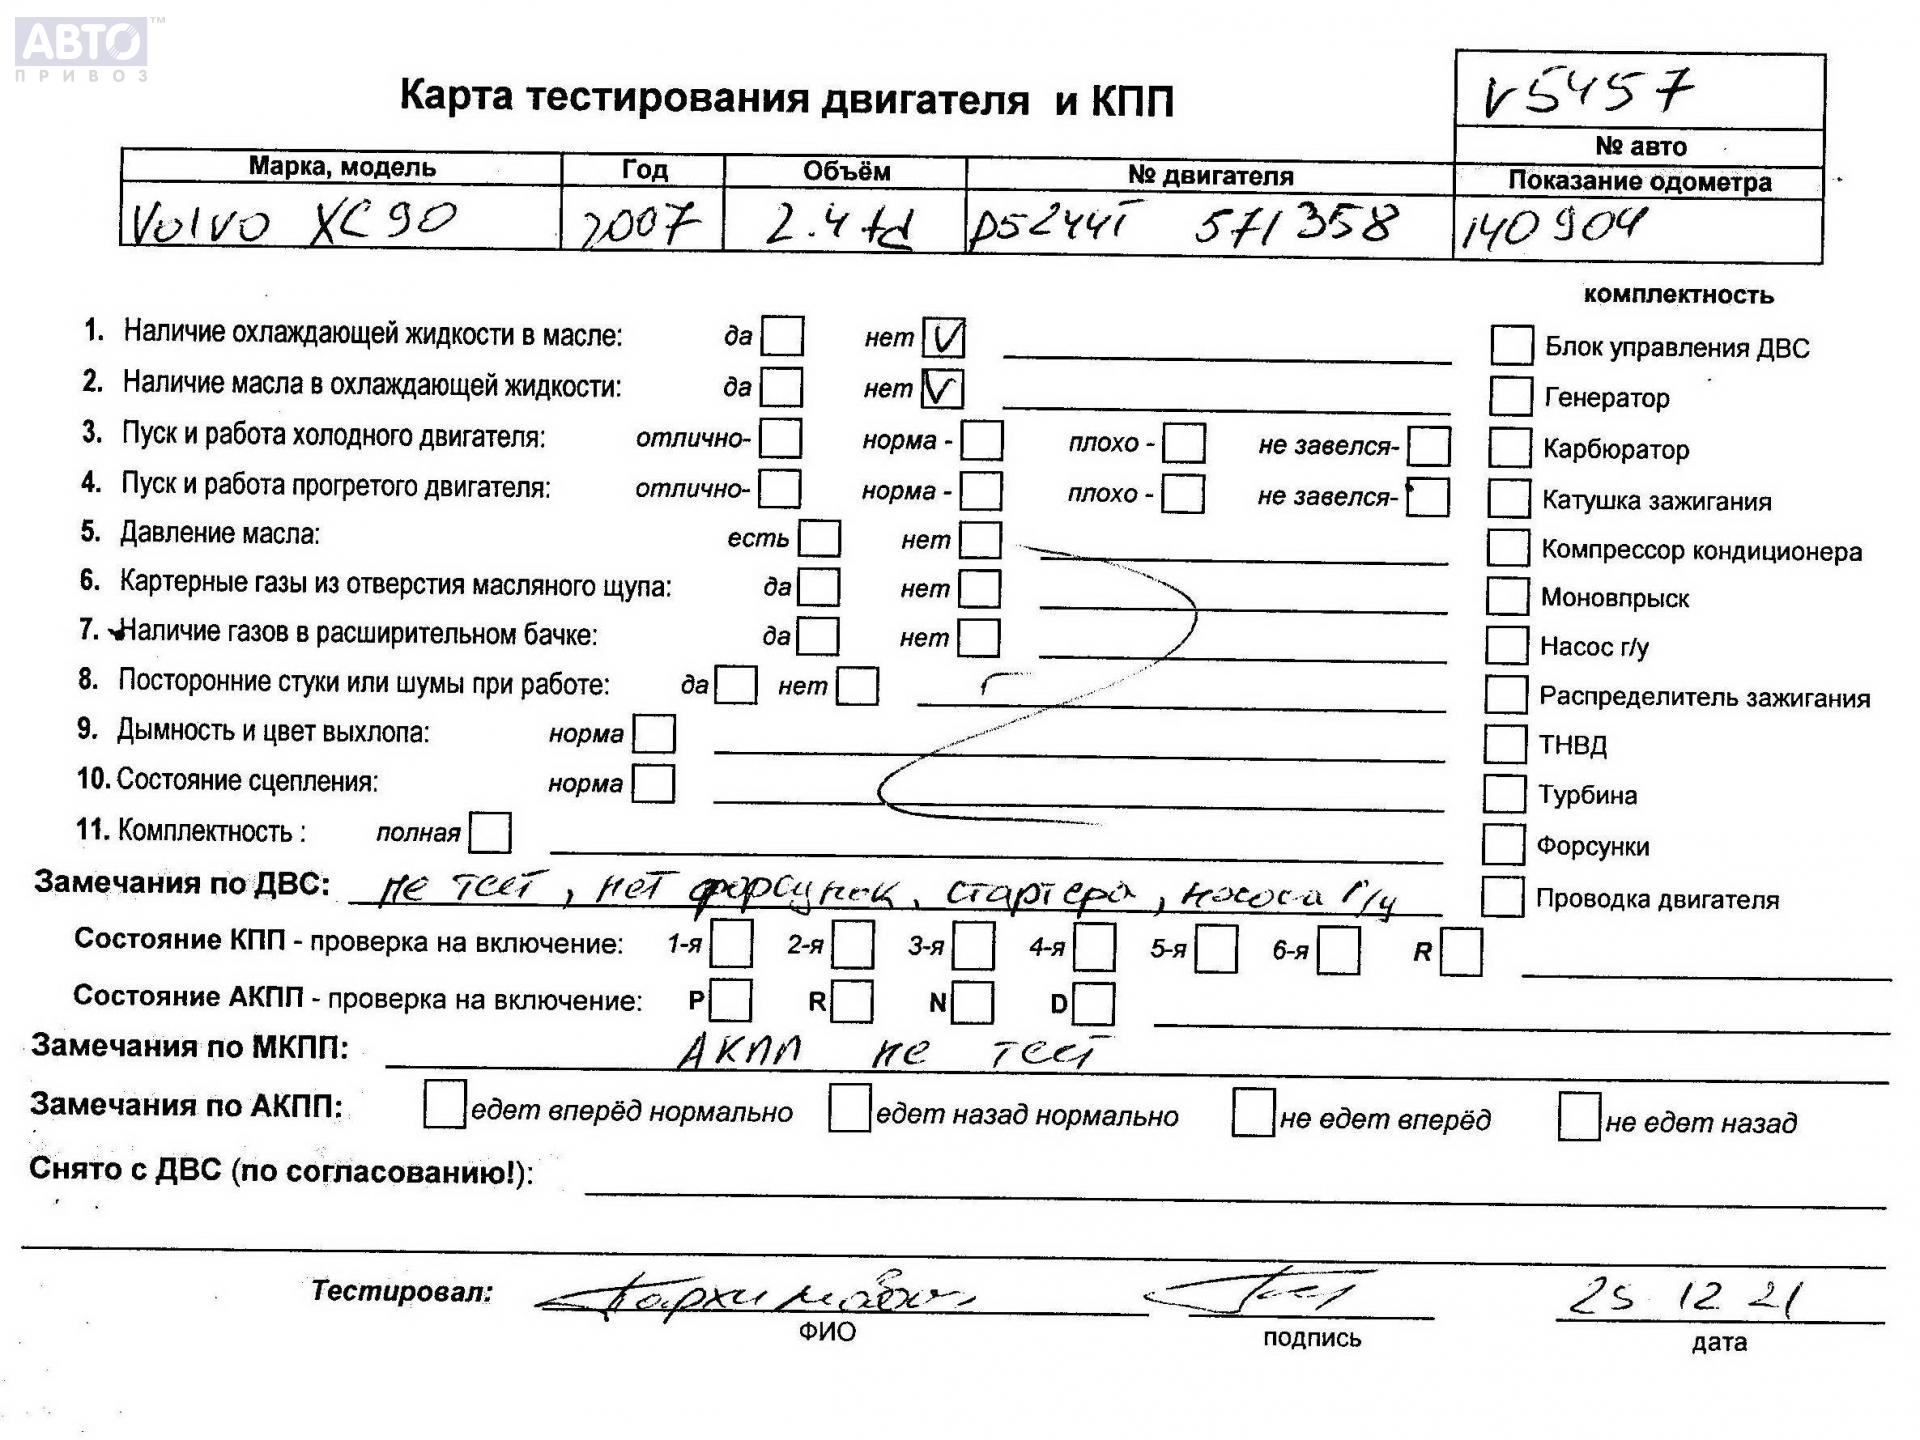 АВТО™
ПРИВОЗ
Карта тестирования двигателя и КПП
v5457
№ авто
Марка, модель Год Объём № двигателя Показание одометра
Volvo XC90 2007 2.4 td D5244T 571358 140904
комплектность
1. Наличие охлаждающей жидкости в масле: да нет V Блок управления ДВС
2. Наличие масла в охлаждающей жидкости: да нет V Генератор
3. Пуск и работа холодного двигателя: отлично- норма - плохо - не завелся- Карбюратор
4. Пуск и работа прогретого двигателя: отлично- норма - плохо - не завелся- Катушка зажигания
5. Давление масла: есть нет Компрессор кондиционера
6. Картерные газы из отверстия масляного щупа: да нет Моновпрыск
7. Наличие газов в расширительном бачке: да нет Насос г/у
8. Посторонние стуки или шумы при работе: да нет Распределитель зажигания
9. Дымность и цвет выхлопа: норма ТНВД
10. Состояние сцепления: норма Турбина
11. Комплектность : полная Форсунки
Замечания по ДВС: не тест, нет форсунок, стартера, насоса г/у Проводка двигателя
Состояние КПП - проверка на включение: 1-я 2-я 3-я 4-я 5-я 6-я R
Состояние АКПП - проверка на включение: P R N D
Замечания по МКПП: АКПП не тест
Замечания по АКПП: едет вперёд нормально едет назад нормально не едет вперёд не едет назад
Снято с ДВС (по согласованию!):
Тестировал: 25 12 21
ФИО подпись дата